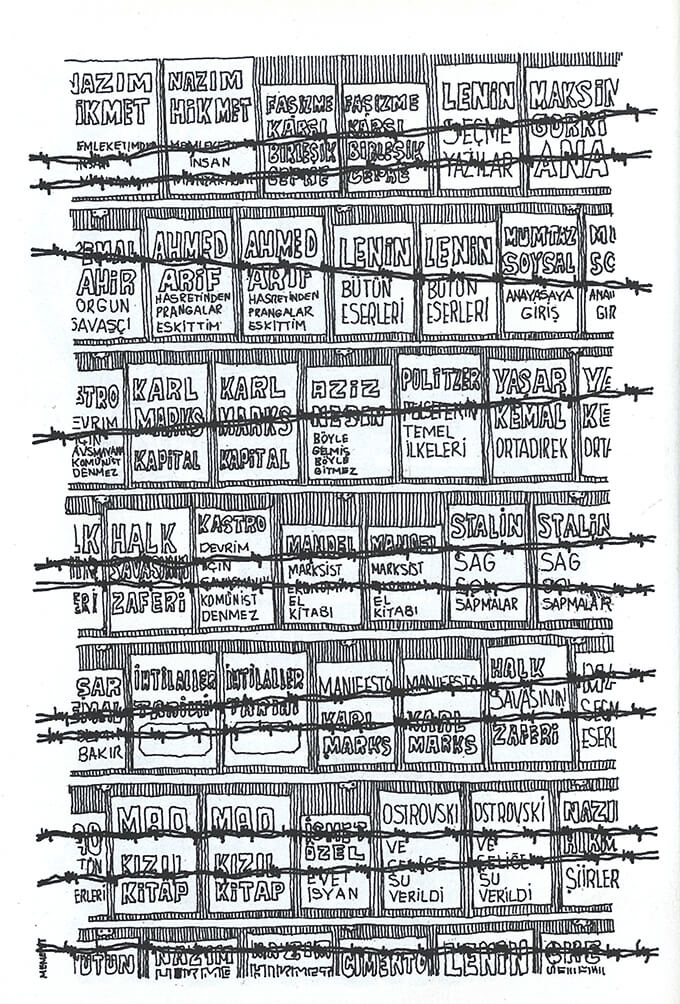 NAZIM
HİKMET
EMLEKETİMDEN
İNSAN
NAZIM
HİKMET
MEMLEKET
İNSAN
MANZARALARI
FAŞİZME
KARŞI
BİRLEŞİK
CEPHE
FAŞİZME
KARŞI
BİRLEŞİK
CEPHE
LENIN
SEÇME
YAZILAR
MAKSİM
GORKİ
ANA
EMAL
AHIR
ORGUN
SAVAŞÇI
AHMED
ARİF
HASRETİNDEN
PRANGALAR
ESKİTTİM
AHMED
ARİF
HASRETİNDEN
PRANGALAR
ESKİTTİM
LENİN
BÜTÜN
ESERLERİ
LENİN
BÜTÜN
ESERLERİ
MUMTAZ
SOYSAL
ANAYASAYA
GİRİŞ
MU
SO
ANAY
GİR
STRO
EVRİM
İÇİN
KOMÜNİST
DENMEZ
KARL
MARKS
KAPİTAL
KARL
MARKS
KAPİTAL
AZİZ
NESEN
BÖYLE
GELMİŞ
BÖYLE
GİTMEZ
POLİTZER
FELSEFENİN
TEMEL
İLKELERİ
YAŞAR
KEMAL
ORTADİREK
YA
KE
ORTA
LK
ERİ
HALK
SAVAŞININ
ZAFERİ
KASTRO
DEVRİM
İÇİN
SAVAŞMAYANA
KOMÜNİST
DENMEZ
MANDEL
MARKSİST
EKONOMİ
EL
KİTABI
MANDEL
MARKSİST
EKONOMİ
EL
KİTABI
STALİN
SAG
SOL
SAPMALAR
STALİN
SAG
SOL
SAPMALAR
ŞAR
EMAL
BAKIR
İHTİLALLER
TARİHİ
İHTİLALLER
TARİHİ
MANİFESTO
KARL
MARKS
MANİFESTO
KARL
MARKS
HALK
SAVAŞININ
ZAFERİ
MA
SEÇM
ESERL
TÜN
ERLERİ
MAO
KIZIL
KİTAP
MAO
KIZIL
KİTAP
İSMET
ÖZEL
EVET
İSYAN
OSTROVSKİ
VE
ÇELİĞE
SU
VERİLDİ
OSTROVSKİ
VE
ÇELİĞE
SU
VERİLDİ
NAZI
HİKM
ŞİİRLER
TÜTÜN
NAZIM
HİKME
NAZIM
HİKMET
ÇİMENTO
LENİN